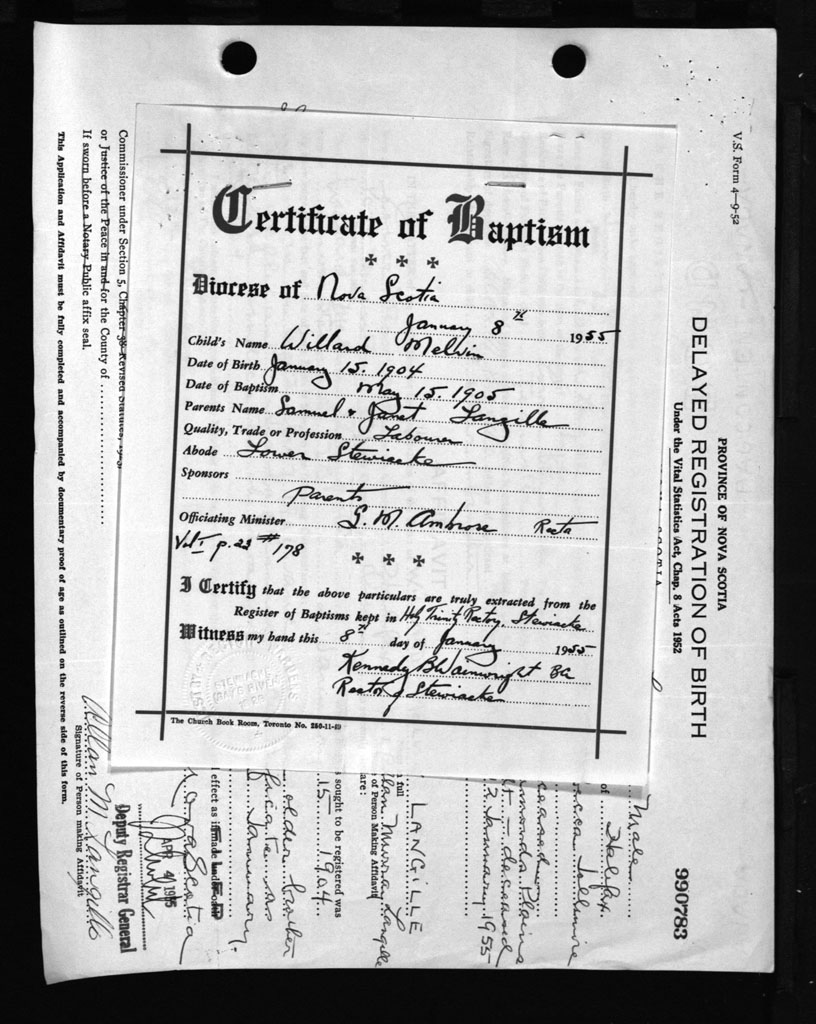 Certificate of Baptism
Diocese of Nova Scotia
January 8th 1955
Child's Name Willard Melvin
Date of Birth January 15. 1904
Date of Baptism May 15. 1905
Parents Name Samuel & Janet Langille
Quality, Trade or Profession Labourer
Abode Lower Stewiacke
Sponsors
Parents
Officiating Minister G. M. Ambrose Rector
Vol I p. 22 # 178
I Certify that the above particulars are truly extracted from the
Register of Baptisms kept in Holy Trinity Rectory, Stewiacke
Witness my hand this 8th day of January 1955
Kennedy B Wainwright BA
Rector of Stewiacke
The Church Book Room, Toronto No. 250-11-49
V.S. Form 4—9-52
PROVINCE OF NOVA SCOTIA
DELAYED REGISTRATION OF BIRTH
Under the Vital Statistics Act, Chap. 8 Acts 1952
990783
Male
of Halifax
deceased
t - deceased
2 January, 1955
LANGILLE
n full
llan Murray Langille
e of Person Making Affidavit
are:
s sought to be registered was
15 1904
older brother
ficate was
January
l effect as if made
Nova Scotia
APR 4 1955
Deputy Registrar General
Allan M. Langille
Signature of Person making Affidavit
Commissioner under Section 5, Chapter 38 Revised Statutes,
or Justice of the Peace in and for the County of
If sworn before a Notary Public affix seal.
This Application and Affidavit must be fully completed and accompanied by documentary proof of age as outlined on the reverse side of this form.